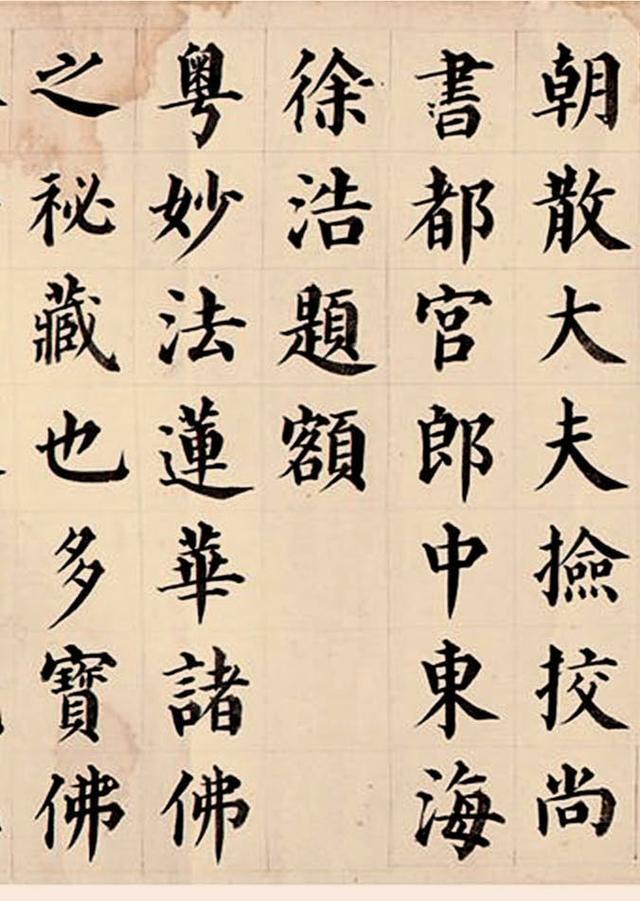 朝散大夫撿挍尚
書都官郎中東海
徐浩題額
粵妙法蓮華諸佛
之秘藏也多寶佛